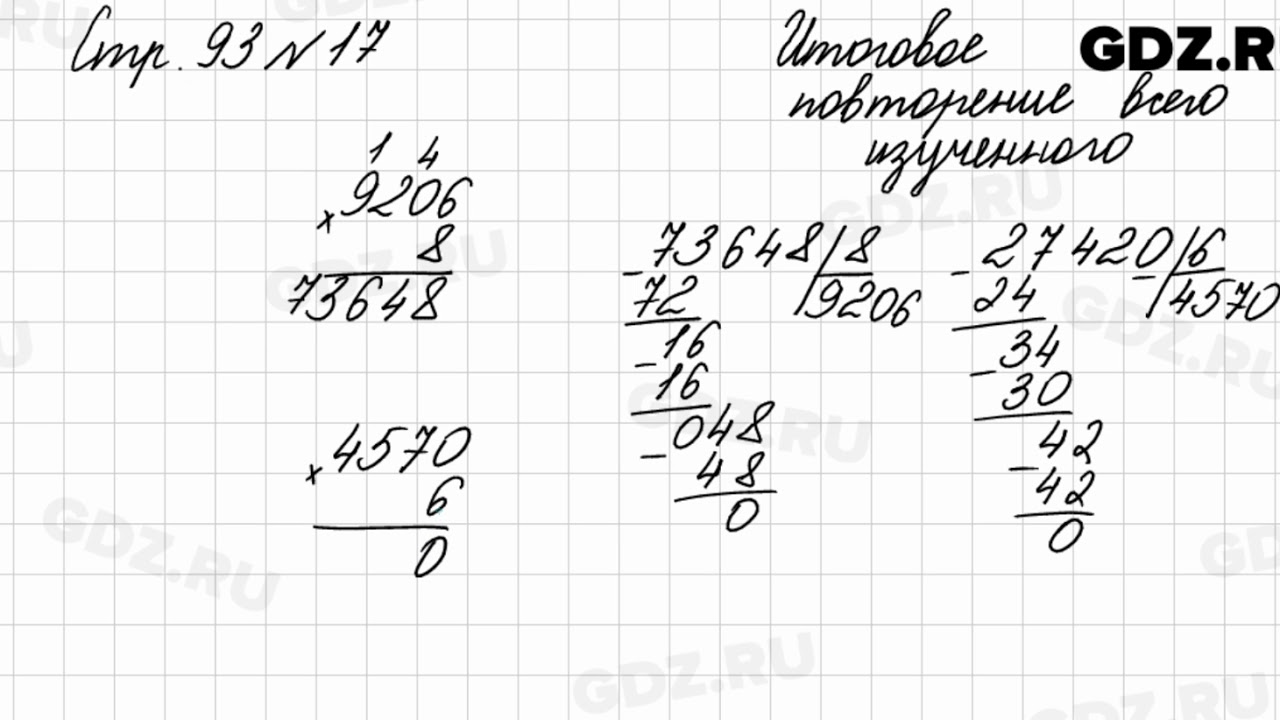 Стр. 93 № 17
Итоговое
повторение всего
изученного
GDZ.R
1 4
× 9206
8
73648
× 4570
6
0
- 73648 | 8
72 | 9206
16
- 16
048
- 48
0
- 27420 | 6
24 | 4570
34
- 30
42
- 42
0
GDZ.RU
GDZ.RU
GDZ.RU
GDZ.RU
GDZ.RU
GDZ.RU